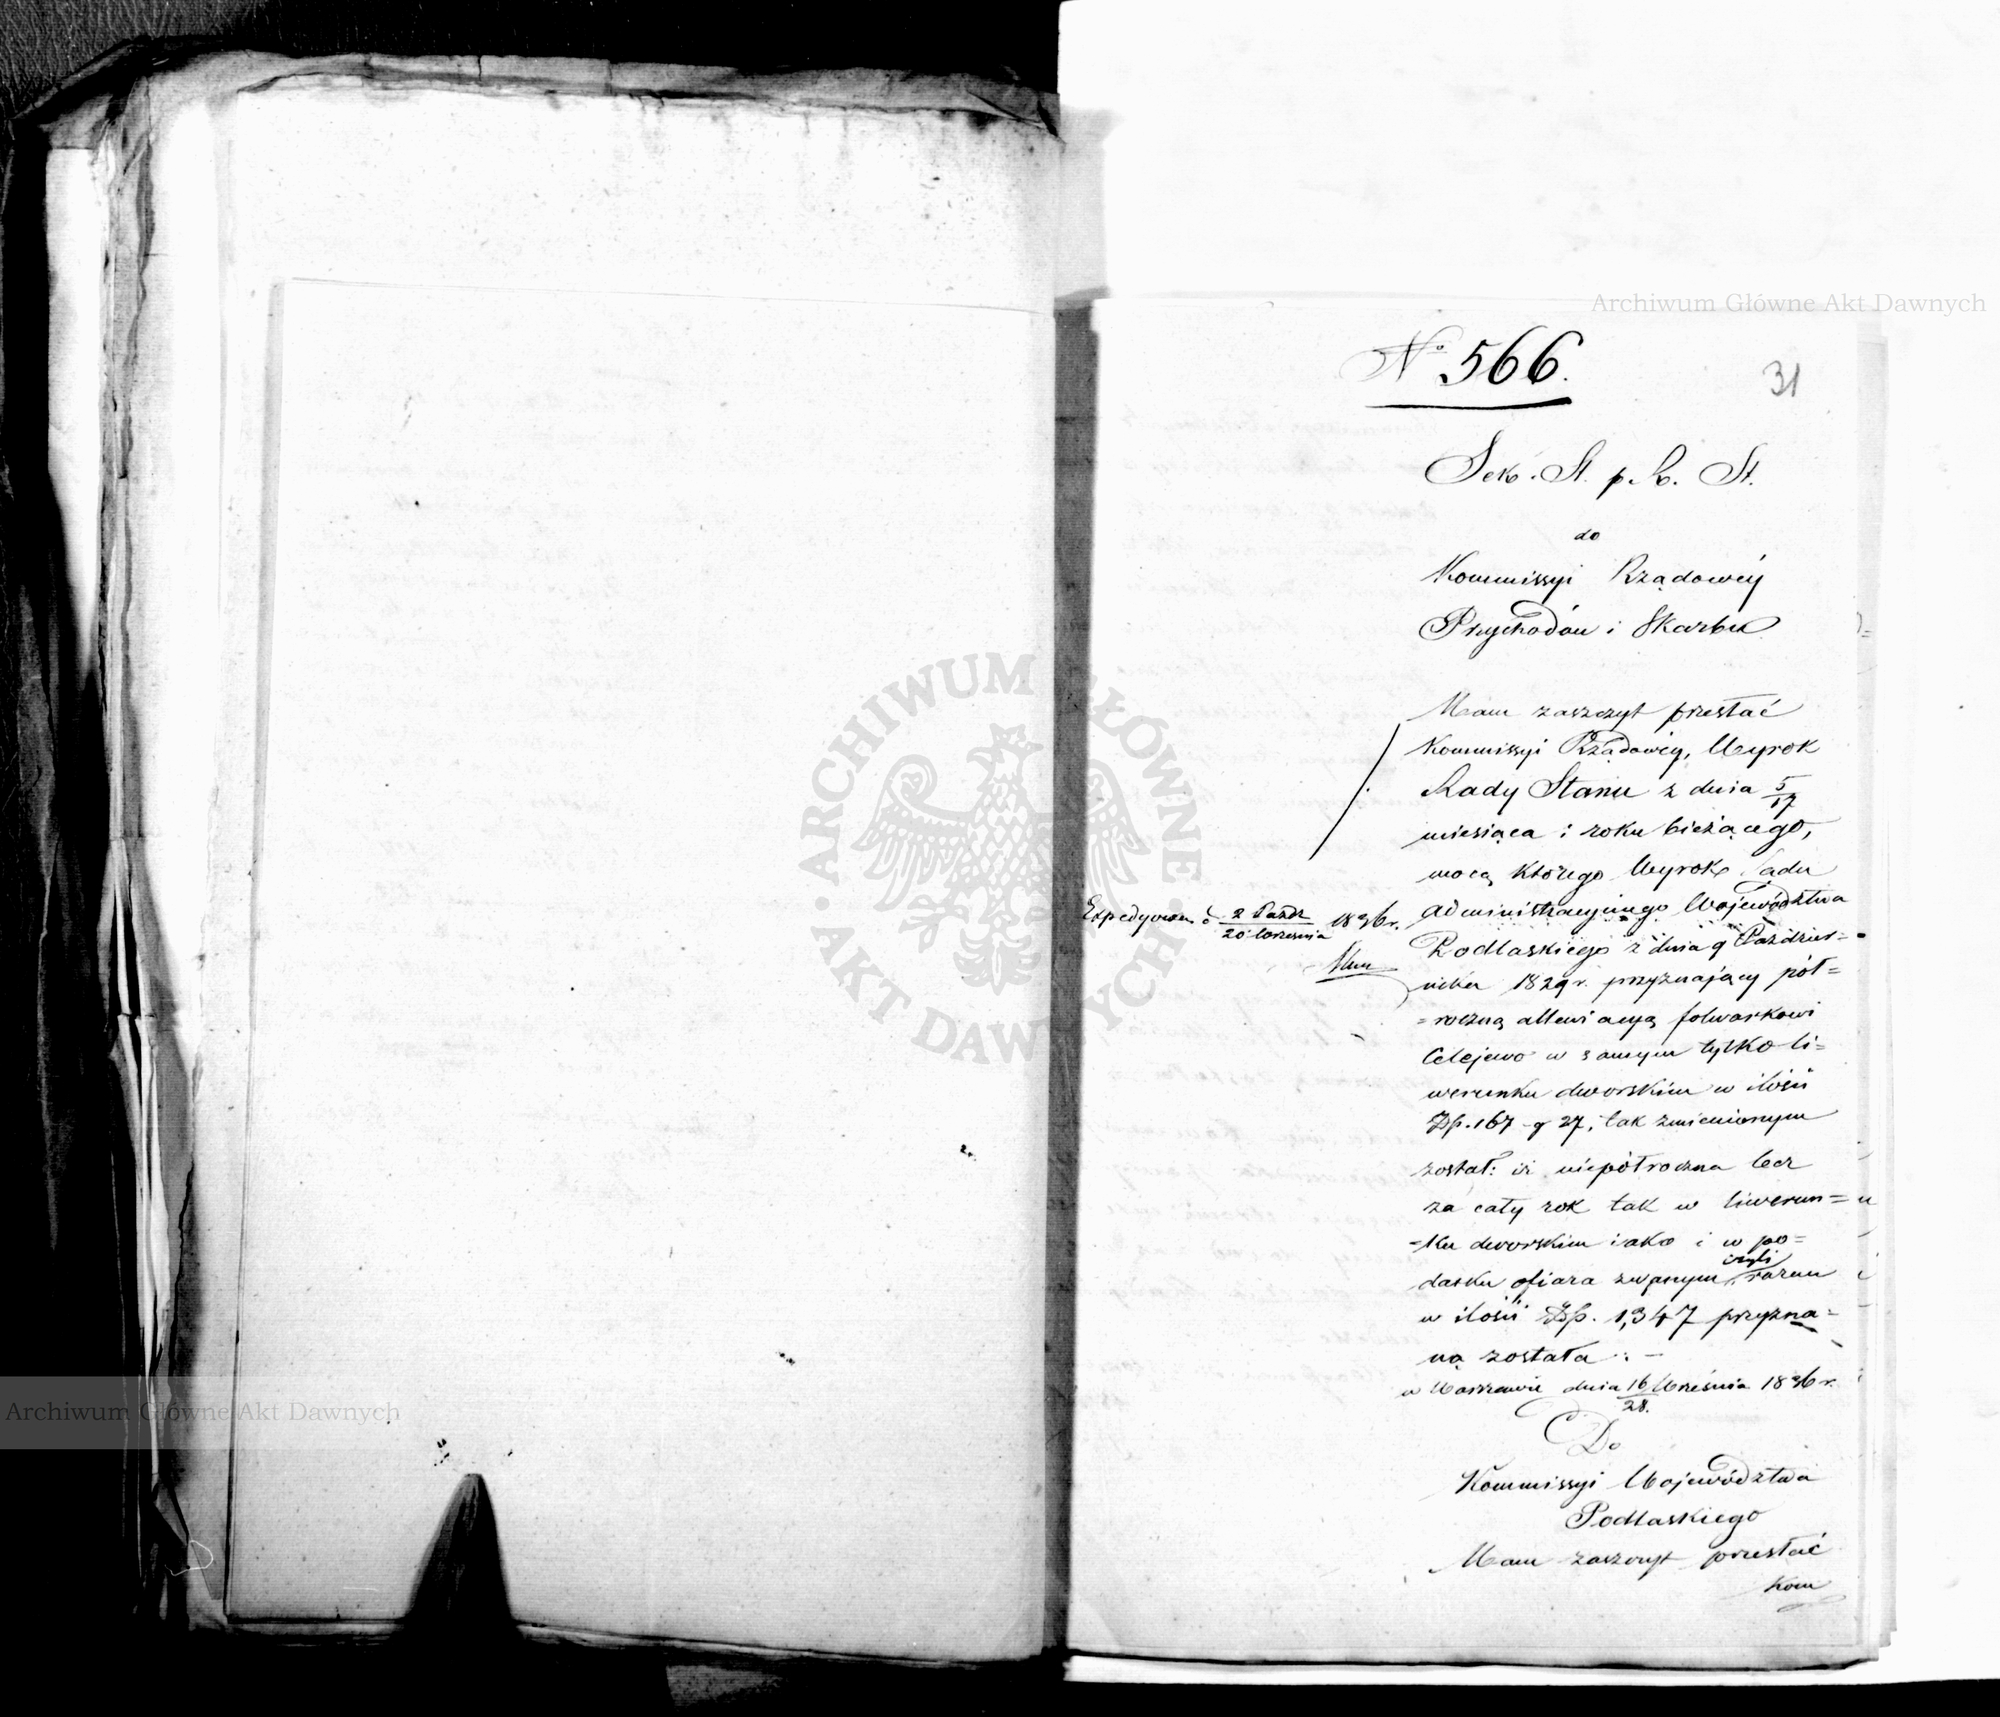 Archiwum Główne Akt Dawnych
No 566.
31
Sek. St. p. R. St.
do
Kommissyi Rządowéy
Przychodów i Skarbu
Mam zaszczyt przesłać
Kommissyi Rządowéy, Wyrok
Rady Stanu z dnia 5/17
miesiąca i roku bieżącego,
mocą którego Wyrok Sądu
Administracyjnego Województwa
Podlaskiego z dnia 9 Paździer=
nika 1829 r. przyznający pół=
=roczną allewiacyą folwarkowi
Celejewo w samym tylko li=
werunku dworskim w ilości
Złp. 167 g 27, tak zmienionym
został: iż niepółroczna lecz
za cały rok tak w liwerun=
=ku dworskim iako i w po=
datku ofiara zwanym czyli razem
w ilości Złp. 1,347 przyzna=
ną została. –
w Warszawie dnia 16/28 Września 1836 r.
Do
Kommissyi Województwa
Podlaskiego
Mam zaszczyt przesłać
Kom
Expedyowano d. 2 Paźdz / 20 Września 1836 r.
ARCHIWUM GŁÓWNE AKT DAWNYCH
Archiwum Główne Akt Dawnych